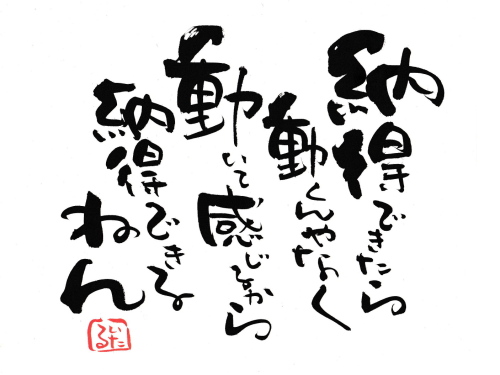 納得できたら
動くんやなく
動いて感じるから
納得できる
ねん
いたる